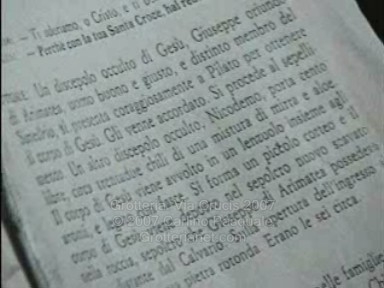 Ti adoriamo, o Cristo, e ti
Perchè con la tua Santa Croce, hai
Un discepolo occulto di Gesù, Giuseppe oriundo
di Arimatea, uomo buono e giusto, e distinto membro del
Sinedrio, si presenta coraggiosamente a Pilato per ottenere
il corpo di Gesù. Gli venne accordato. Si procede al seppelli-
mento. Un altro discepolo occulto, Nicodemo, porta cento
libre, circa trentadue chili di una mistura di mirra e aloe.
Il corpo di Gesù viene avvolto in un lenzuolo insieme agli
aromi, e Si forma un piccolo corteo e il
corpo di Gesù viene nel sepolcro nuovo scavato
nella roccia, Giuseppe di Arimatea possedeva
distante dal Calvario sulla apertura dell'ingresso
pietra rotonda. Erano le sei circa.
nelle famiglie
Grotteria: Via Crucis 2007
© 2007
Grotteria.net.com